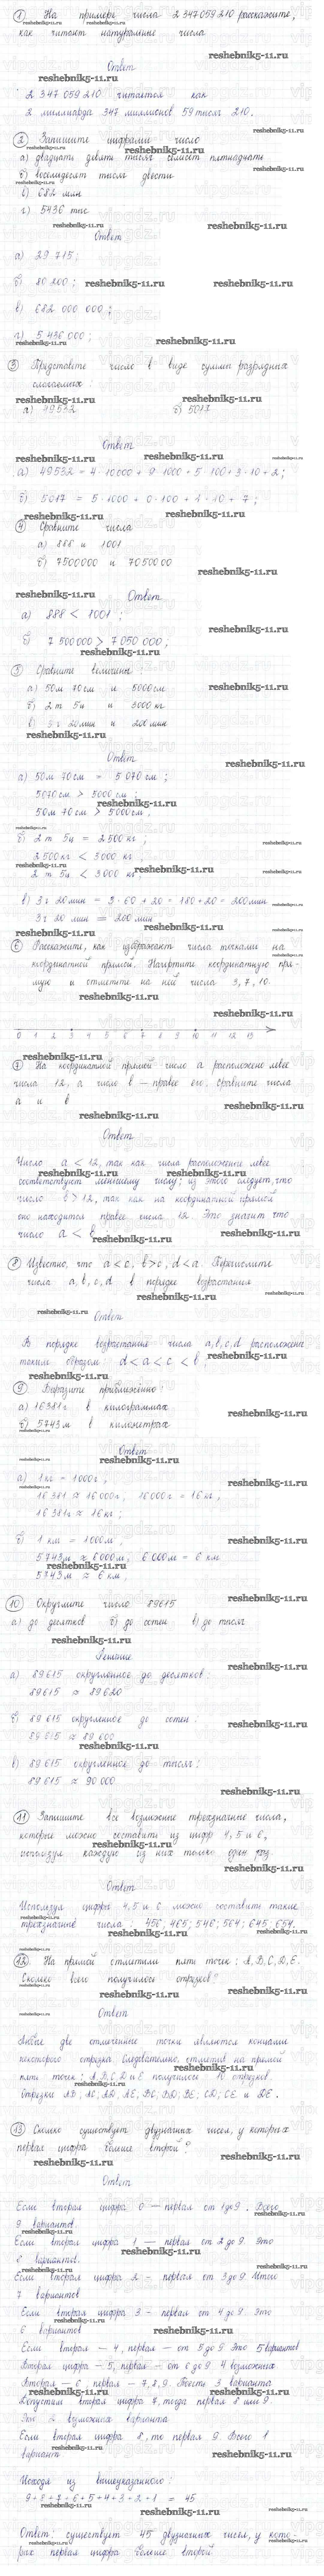 1) На примере числа 2 347 059 210 расскажите,
как читают натуральные числа.
reshebnik5-11.ru
Ответ
2 347 059 210 читается как
2 миллиарда 347 миллионов 59 тысяч 210.
2) Запишите цифрами число
а) двадцать девять тысяч семьсот пятнадцать
б) восемьдесят тысяч двести
в) 682 млн
г) 5436 тыс
Ответ
а) 29 715;
б) 80 200;
в) 682 000 000;
г) 5 436 000;
3) Представьте число в виде суммы разрядных
слагаемых:
а) 49532 б) 5017
Ответ
а) 49532 = 4·10000 + 9·1000 + 5·100 + 3·10 + 2;
б) 5017 = 5·1000 + 0·100 + 1·10 + 7;
4) Сравните числа
а) 888 и 1001
б) 7500000 и 7050000
Ответ
а) 888 < 1001;
б) 7 500 000 > 7 050 000;
5) Сравните величины:
а) 50м 70см и 5000см
б) 2т 5ц и 3000 кг
в) 3ч 20мин и 200мин
Ответ
а) 50м 70см = 5 070см;
5070см > 5000см;
50м 70см > 5000см.
б) 2т 5ц = 2500кг;
2500кг < 3000 кг
2т 5ц < 3000 кг
в) 3ч 20мин = 3·60 + 20 = 180+20 = 200мин
3ч 20 мин = 200мин
6) Расскажите, как изображают числа точками на
координатной прямой. Начертите координатную пря-
мую и отметьте на ней числа 3, 7, 10.
0 1 2 3 4 5 6 7 8 9 10 11 12 13
7) На координатной прямой число а расположено левее
числа 12, а число в — правее его. Сравните числа
а и в
Ответ
Число а < 12, так как числа расположение левее
соответствует меньшему числу; из этого следует, что
число в > 12, так как на координатной прямой
оно находится правее числа 12. Это значит что
число а < в
8) Известно, что а < с, в > с, d < а. Перечислите
числа а, в, с, d в порядке возрастания
Ответ
В порядке возрастания числа а, в, с, d расположены
таким образом d < а < с < в
9) Выразите приближенно:
а) 16381г в килограммах
б) 5743м в километрах
Ответ
а) 1кг = 1000г,
16 381 ≈ 16 000г, 16 000г = 16кг,
16 381г ≈ 16кг;
б) 1 км = 1000м;
5743м ≈ 6000м, 6 000м = 6 км
5743м ≈ 6 км;
10) Округлите число 89615
а) до десятков б) до сотен в) до тысяч
Решение
а) 89 615 округленное до десятков:
89615 ≈ 89620
б) 89 615 округленное до сотен:
89 615 ≈ 89 600
в) 89 615 округленное до тысяч:
89 615 ≈ 90 000
11) Запишите все возможные трехзначные числа,
которые можно составить из цифр 4, 5 и 6,
используя каждую из них только один раз.
Ответ
Используя цифры 4, 5 и 6 можно составить такие
трехзначные числа: 456; 465; 546; 564; 645; 654.
12) На прямой отметили пять точек: А, В, С, D, Е.
Сколько всего получилось отрезков?
Ответ
Любые две отмеченные точки являются концами
некоторого отрезка. Следовательно, отметив на прямой
пять точек: А, В, С, D и Е получилось 10 отрезков.
Отрезки АВ; АС; АD; АЕ; ВС; ВD; ВЕ; СD; СЕ и DЕ.
13) Сколько существует двузначных чисел, у которых
первая цифра больше второй?
Ответ
Если вторая цифра 0 — первая от 1 до 9. Всего
9 вариантов
Если вторая цифра 1 — первая от 2 до 9. Это
8 вариантов.
Если вторая цифра 2 - первая от 3 до 9 Итого
7 вариантов
Если вторая цифра 3 - первая от 4 до 9 Это
6 вариантов
Если вторая — 4, первая — от 5 до 9 Это 5 вариантов
Вторая цифра — 5, первая — от 6 до 9 4 возможных
Вторая — 6, первая — 7, 8, 9. То есть 3 варианта
Допустим вторая цифра 7, тогда первая 8 или 9.
Это 2 возможных варианта
Если вторая цифра 8, то первая 9. Всего 1
вариант
Исходя из вышеуказанного:
9 + 8 + 7 + 6 + 5 + 4 + 3 + 2 + 1 = 45
Ответ: существует 45 двузначных чисел, у кото-
рых первая цифра больше второй.